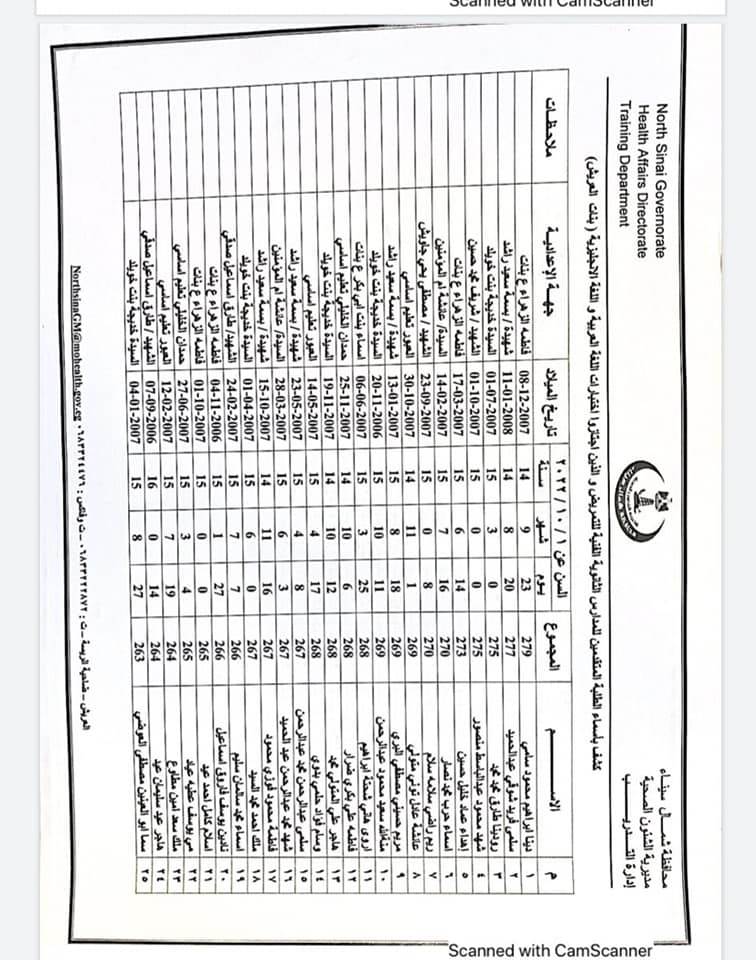 Scanned with CamScanner
North Sinai Governorate
Health Affairs Directorate
Training Department
محافظة شمال سيناء
مديرية الشئون الصحية
إدارة التدريب
كشف باسماء الطلبة المتقدمين للمدارس الثانوية الفنية للتمريض و الذين اجتازوا اختبارات اللغة العربية و اللغة الانجليزية (بنات العريش)
م الاســـم المجموع السن عن ٢٠٢٢/١٠/١ تاريخ الميلاد جهة الإعدادية ملاحظات
يوم شهر سنة
١ دينا ابراهيم محمود سامي 279 23 9 14 08-12-2007 فاطمه الزهراء ع بنات
٢ سلمى فريد شوقي عبدالحميد 277 20 8 14 11-01-2008 شهيدة / بسمة سعيد راشد
٣ رودينا طارق محمد محمد 275 0 3 15 01-07-2007 السيدة خديجة بنت خويلد
٤ شهد محمود عبدالباسط منصور 275 0 0 15 01-10-2007 الشهيد / شريف محمد حسين
٥ اهداء عماد خليل حسين 273 14 6 15 17-03-2007 فاطمه الزهراء ع بنات
٦ اسماء حرب محمد نصار 270 16 7 15 14-02-2007 السيدة/ عائشة ام المؤمنين
٧ ريم راضي سلامه سلام 270 8 0 15 23-09-2007 الشهيد / مصطفى يحي جاويش
٨ عائشه عادل تولى متولى 269 1 11 14 30-10-2007 العبور تعليم اساسي
٩ مريم حسيني مصطفى 269 18 8 15 13-01-2007 شهيدة / بسمة سعيد راشد
١٠ منةالله سعيد محمود عبدالرحمن 269 11 10 15 20-11-2006 السيدة خديجة بنت خويلد
١١ اروى هاني شحتة ابراهيم 268 25 3 15 06-06-2007 اسماء بنت ابي بكر ع بنات
١٢ فاطمه علي بكري ضرار 268 6 10 14 25-11-2007 حمدان الخليلي تعليم اساسي
١٣ هاجر علي المتولي محمد 268 12 10 14 19-11-2007 السيدة خديجة بنت خويلد
١٤ وسام فؤاد حلمي بدوي 268 17 4 15 14-05-2007 العبور تعليم اساسي
١٥ سلمى عبدالرحمن محمد عبدالرحمن 267 8 4 15 23-05-2007 شهيدة / بسمة سعيد راشد
١٦ شهد محمد عبدالرحمن عبد الحميد 267 3 6 15 28-03-2007 السيدة/ عائشة ام المؤمنين
١٧ فاطمة محمود فوزي محمود 267 16 11 14 15-10-2007 شهيدة / بسمة سعيد راشد
١٨ ملك احمد محمد السيد 267 0 6 15 01-04-2007 السيدة خديجة بنت خويلد
١٩ اسماء محمد سالمان سليم 266 7 7 15 24-02-2007 الشهيد/ طارق اسماعيل صدقي
٢٠ نادين يوسف فاروق اسماعيل 266 27 1 15 04-11-2006 فاطمه الزهراء ع بنات
٢١ اسلام كامل احمد عيد 265 0 0 15 01-10-2007 فاطمه الزهراء ع بنات
٢٢ مي يوسف عطيه عياد 265 4 3 15 27-06-2007 حمدان الخليلي تعليم اساسي
٢٣ ملك سعد امين مطاوع 264 19 7 15 12-02-2007 العبور تعليم اساسي
٢٤ هاجر عيد سليمان عيد 264 14 0 16 07-09-2006 الشهيد / طارق اسماعيل صدقي
٢٥ سما ابو العينين مصطفى العوضي 263 27 8 15 04-01-2007 السيدة خديجة بنت خويلد
العريش – ضاحية الريسة – ت : ٠٦٨٣٣٢٢٨٧٢ – ت وفاكس : ٠٦٨٣٣٢٤٤٧٦ NorthsinaGM@mohealth.gov.eg
Scanned with CamScanner